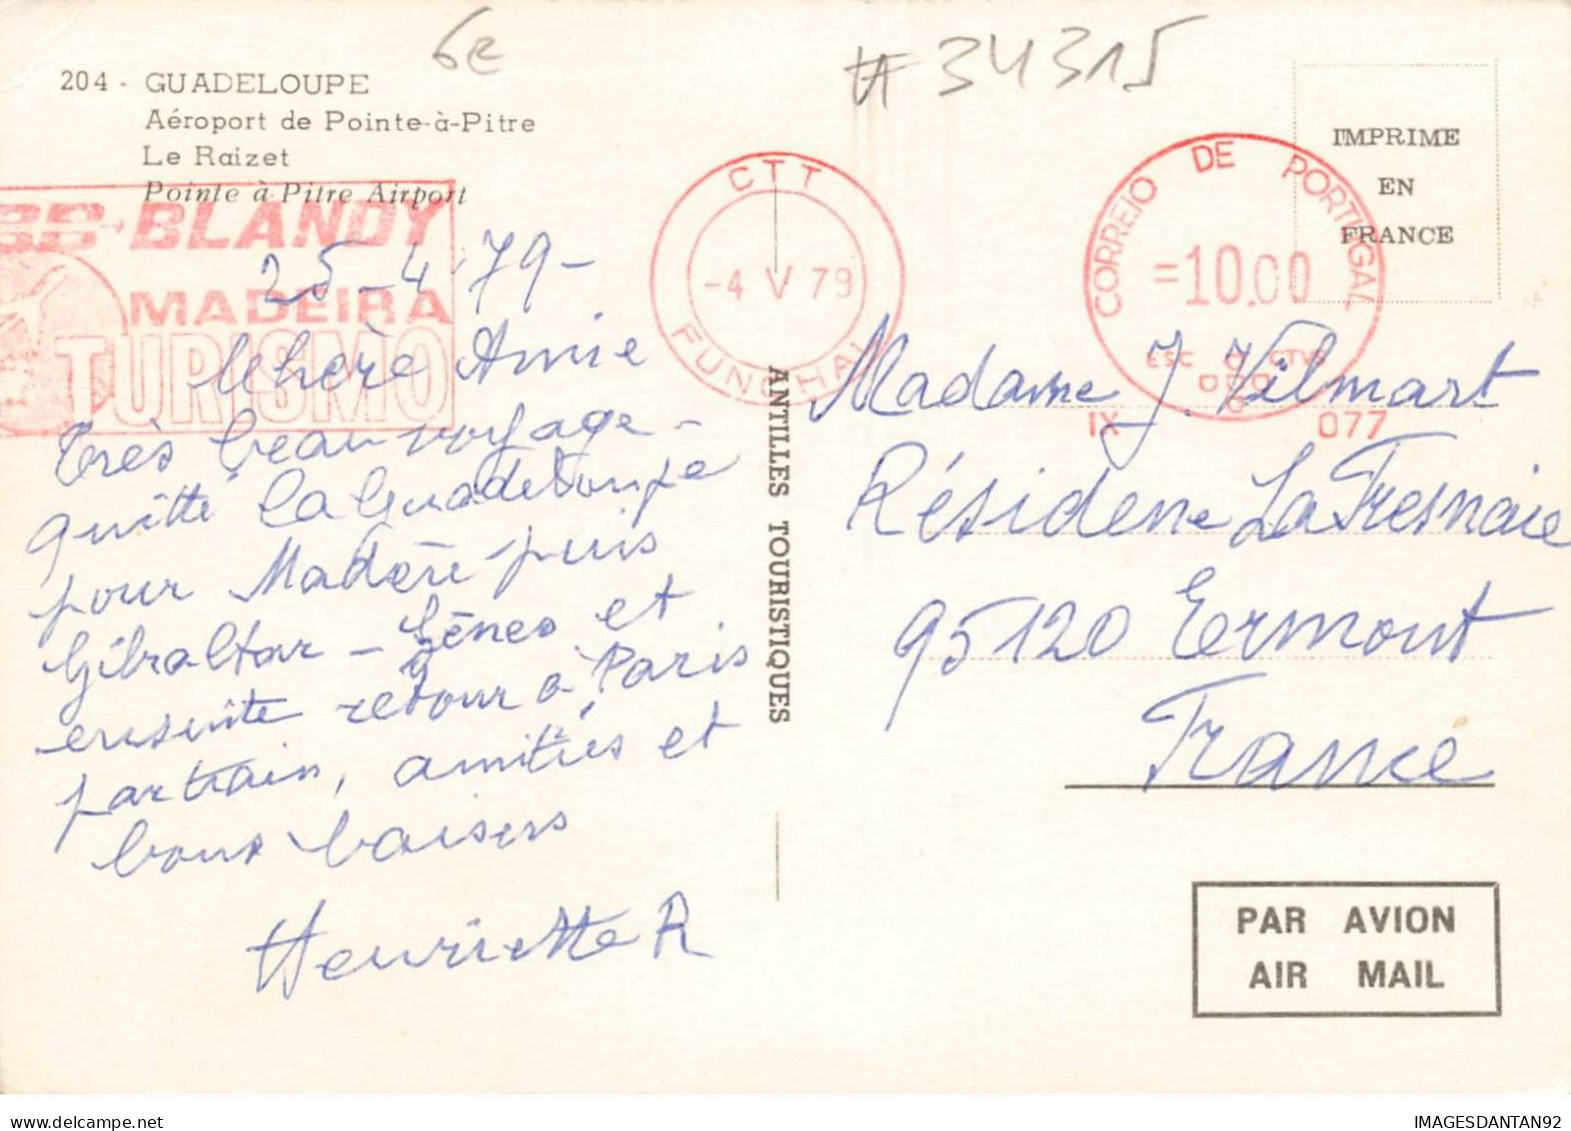 6e
#34315
204 - GUADELOUPE
Aéroport de Pointe-à-Pitre
Le Raizet
Pointe à Pitre Airport
BLANDY
MADEIRA
TURISMO
CTT
-4 V 79
FUNCHAL
CORREIO DE PORTUGAL
=10.00
IX 077
IMPRIME
EN
FRANCE
25-4-79-
Chère Amie
Très beau voyage -
quitté la Guadeloupe
pour Madère - puis
Gibraltar - Gênes et
ensuite retour à Paris
par train, amitiés et
bons baisers
Henriette R
ANTILLES TOURISTIQUES
Madame J. Vilmart
Résidence La Fresnaie
95120 Ermont
France
PAR AVION
AIR MAIL
IMAGESDANTAN92